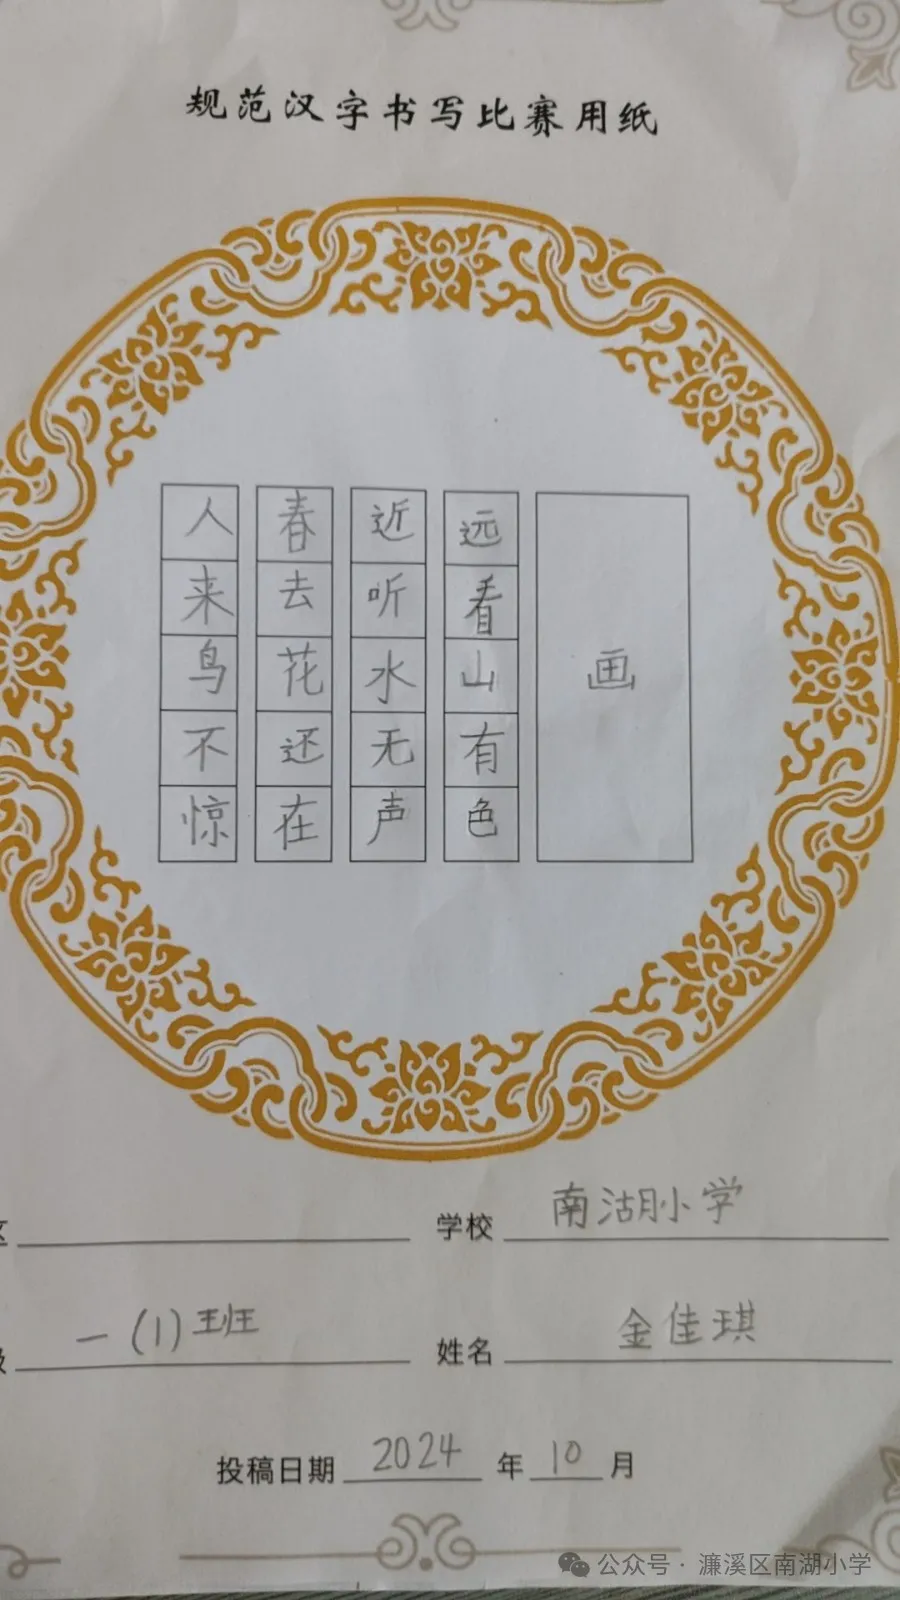 规范汉字书写比赛用纸
画
远看山有色
近听水无声
春去花还在
人来鸟不惊
学校 南湖小学
一(1)班
姓名 金佳琪
投稿日期 2024 年 10 月
公众号·濂溪区南湖小学